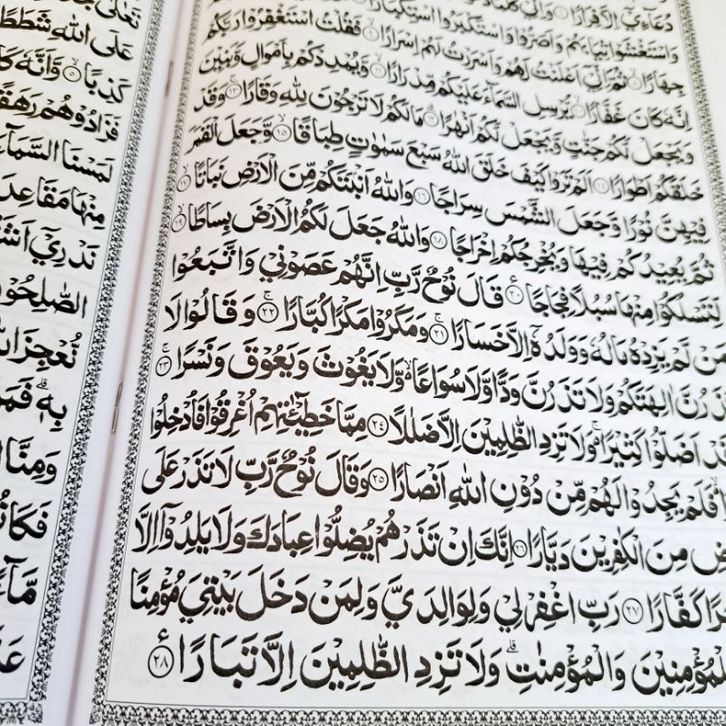 دُعَآءِيْٓ اِلَّا فِرَارًا ۝٦ وَاِنِّيْ كُلَّمَا
وَاسْتَغْشَوْا ثِيَابَهُمْ وَاَصَرُّوْا وَاسْتَكْبَرُوا اسْتِكْبَارًا
جِهَارًا ۝٨ ثُمَّ اِنِّيْٓ اَعْلَنْتُ لَهُمْ وَاَسْرَرْتُ لَهُمْ اِسْرَارًا ۝٩ فَقُلْتُ اسْتَغْفِرُوْا رَبَّكُمْ
اِنَّهٗ كَانَ غَفَّارًا ۝١٠ يُّرْسِلِ السَّمَآءَ عَلَيْكُمْ مِّدْرَارًا ۝١١ وَّيُمْدِدْكُمْ بِاَمْوَالٍ وَّبَنِيْنَ
وَيَجْعَلْ لَّكُمْ جَنّٰتٍ وَّيَجْعَلْ لَّكُمْ اَنْهٰرًا ۝١٢ مَالَكُمْ لَا تَرْجُوْنَ لِلّٰهِ وَقَارًا ۝١٣ وَقَدْ
خَلَقَكُمْ اَطْوَارًا ۝١٤ اَلَمْ تَرَوْا كَيْفَ خَلَقَ اللّٰهُ سَبْعَ سَمٰوٰتٍ طِبَاقًا ۝١٥ وَّجَعَلَ الْقَمَرَ
فِيْهِنَّ نُوْرًا وَّجَعَلَ الشَّمْسَ سِرَاجًا ۝١٦ وَاللّٰهُ اَنْۢبَتَكُمْ مِّنَ الْاَرْضِ نَبَاتًا ۝١٧
ثُمَّ يُعِيْدُكُمْ فِيْهَا وَيُخْرِجُكُمْ اِخْرَاجًا ۝١٨ وَاللّٰهُ جَعَلَ لَكُمُ الْاَرْضَ بِسَاطًا ۝١٩
لِّتَسْلُكُوْا مِنْهَا سُبُلًا فِجَاجًا ۝٢٠ قَالَ نُوْحٌ رَّبِّ اِنَّهُمْ عَصَوْنِيْ وَاتَّبَعُوْا
مَنْ لَّمْ يَزِدْهُ مَالُهٗ وَوَلَدُهٗٓ اِلَّا خَسَارًا ۝٢١ وَمَكَرُوْا مَكْرًا كُبَّارًا ۝٢٢ وَقَالُوْا لَا
تَذَرُنَّ اٰلِهَتَكُمْ وَلَا تَذَرُنَّ وَدًّا وَّلَا سُوَاعًا وَّلَا يَغُوْثَ وَيَعُوْقَ وَنَسْرًا ۝٢٣
وَقَدْ اَضَلُّوْا كَثِيْرًا وَلَا تَزِدِ الظّٰلِمِيْنَ اِلَّا ضَلٰلًا ۝٢٤ مِمَّا خَطِيْٓـٰٔتِهِمْ اُغْرِقُوْا فَاُدْخِلُوْا
فَلَمْ يَجِدُوْا لَهُمْ مِّنْ دُوْنِ اللّٰهِ اَنْصَارًا ۝٢٥ وَقَالَ نُوْحٌ رَّبِّ لَا تَذَرْ عَلَى
مِنَ الْكٰفِرِيْنَ دَيَّارًا ۝٢٦ اِنَّكَ اِنْ تَذَرْهُمْ يُضِلُّوْا عِبَادَكَ وَلَا يَلِدُوْٓا اِلَّا
كَفَّارًا ۝٢٧ رَبِّ اغْفِرْ لِيْ وَلِوَالِدَيَّ وَلِمَنْ دَخَلَ بَيْتِيَ مُؤْمِنًا
لِلْمُؤْمِنِيْنَ وَالْمُؤْمِنٰتِ وَلَا تَزِدِ الظّٰلِمِيْنَ اِلَّا تَبَارًا ۝٢٨
تَعٰلٰى
عَلَى اللّٰهِ شَطَطًا
كَذِبًا ۝٥ وَّاَنَّهٗ كَا
فَزَادُوْهُمْ رَهَقًا
لَمَسْنَا السَّمَآءَ
مِنْهَا مَقَاعِدَ
نَدْرِيْٓ اَشَرٌّ
الصّٰلِحُوْنَ
نُّعْجِزَ اللّٰهَ
بِهٖ فَمَنْ
وَمِنَّا
فَكَانُوْا
مَّآءً